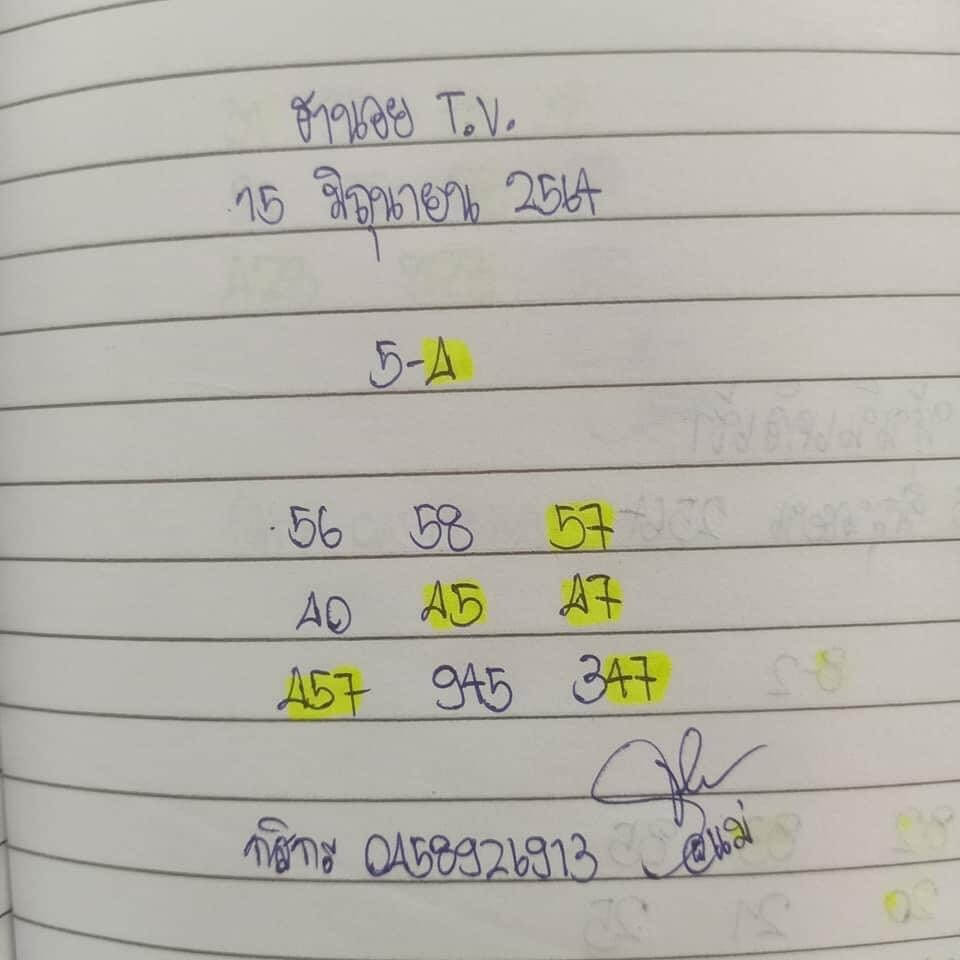 ฮานอย T.V.
15 มิถุนายน 2564
5-4
56 58 57
40 45 47
457 945 347
0458926913 แม่